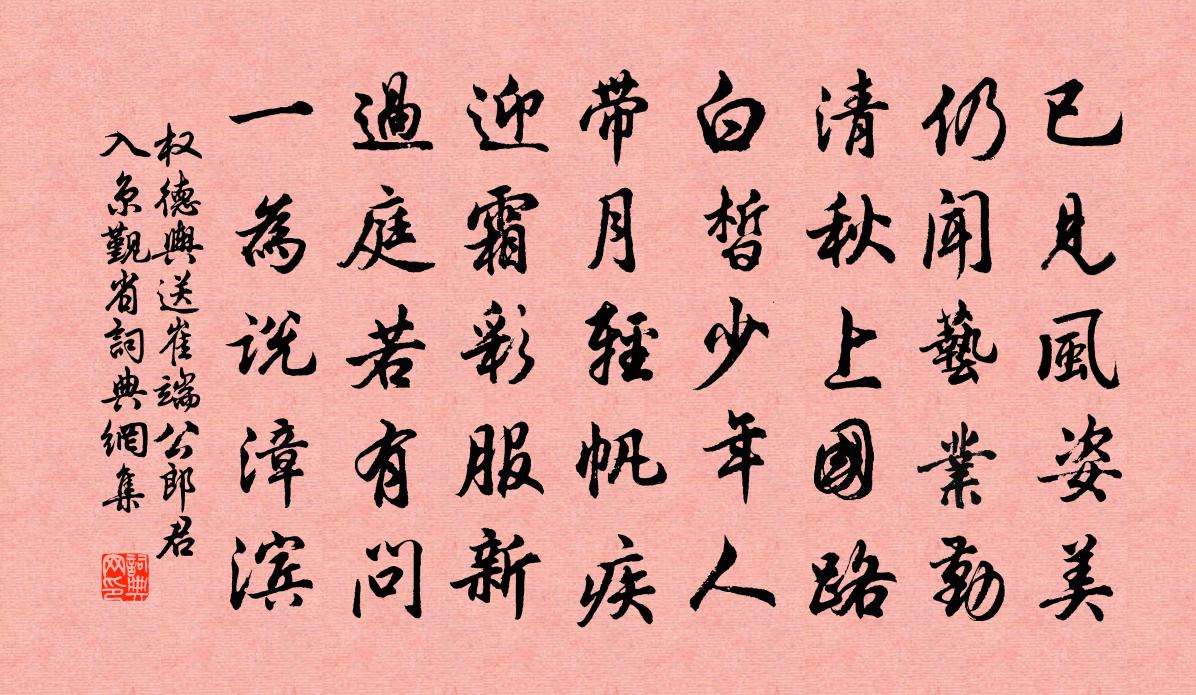 已見風姿美
仍聞藝業勤
清秋上國路
白皙少年人
带月輕帆疾
迎霜彩服新
過庭若有問
一為說漳滨
权德輿送崔端公郎君
入京觐省詞典網集
詞典网印